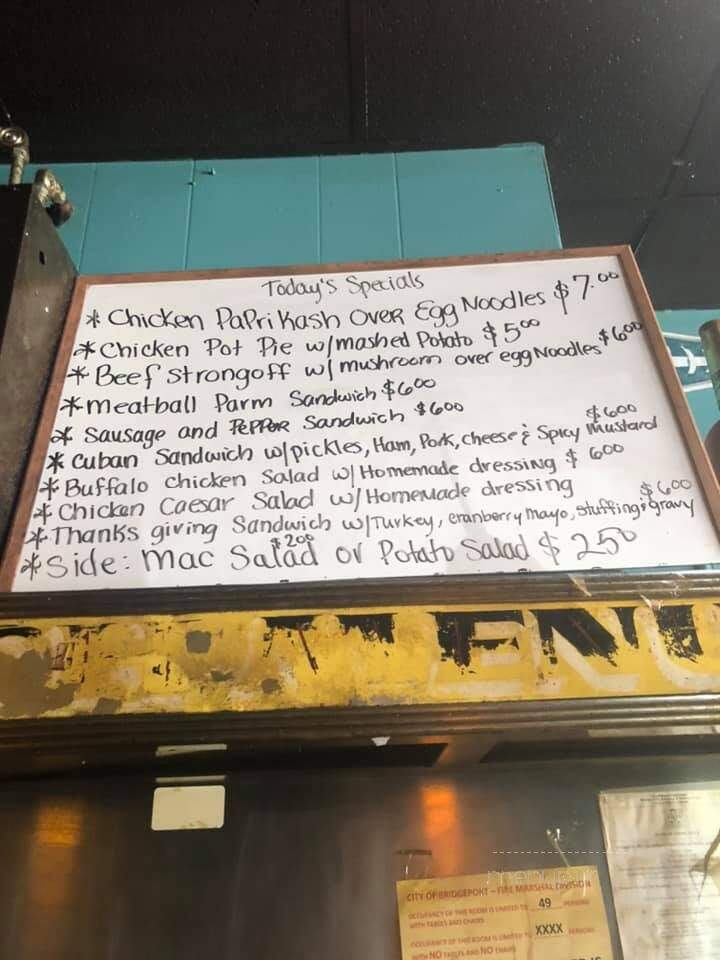 Today's Specials
* Chicken PaPriKash over Egg Noodles $7.00
* Chicken Pot Pie w/mashed Potato $5.00
* Beef strongoff w/ mushroom over egg Noodles $6.00
* meatball Parm Sandwich $6.00
* Sausage and PEPPER Sandwich $6.00
* Cuban Sandwich w/pickles, Ham, Pork, cheese & Spicy Mustard $6.00
* Buffalo chicken Salad w/ Homemade dressing $6.00
* Chicken Caesar Salad w/ Homemade dressing
* Thanks giving Sandwich w/Turkey, cranberry mayo, stuffing & gravy $6.00
* Side: Mac Salad $2.00 or Potato Salad $2.50
CITY OF BRIDGEPORT - FIRE MARSHAL DIVISION
OCCUPANCY OF THIS ROOM IS LIMITED TO 49 PERSONS
WITH TABLES AND CHAIRS
OCCUPANCY OF THIS ROOM IS LIMITED TO XXXX PERSONS
WITH NO TABLES AND NO CHAIRS